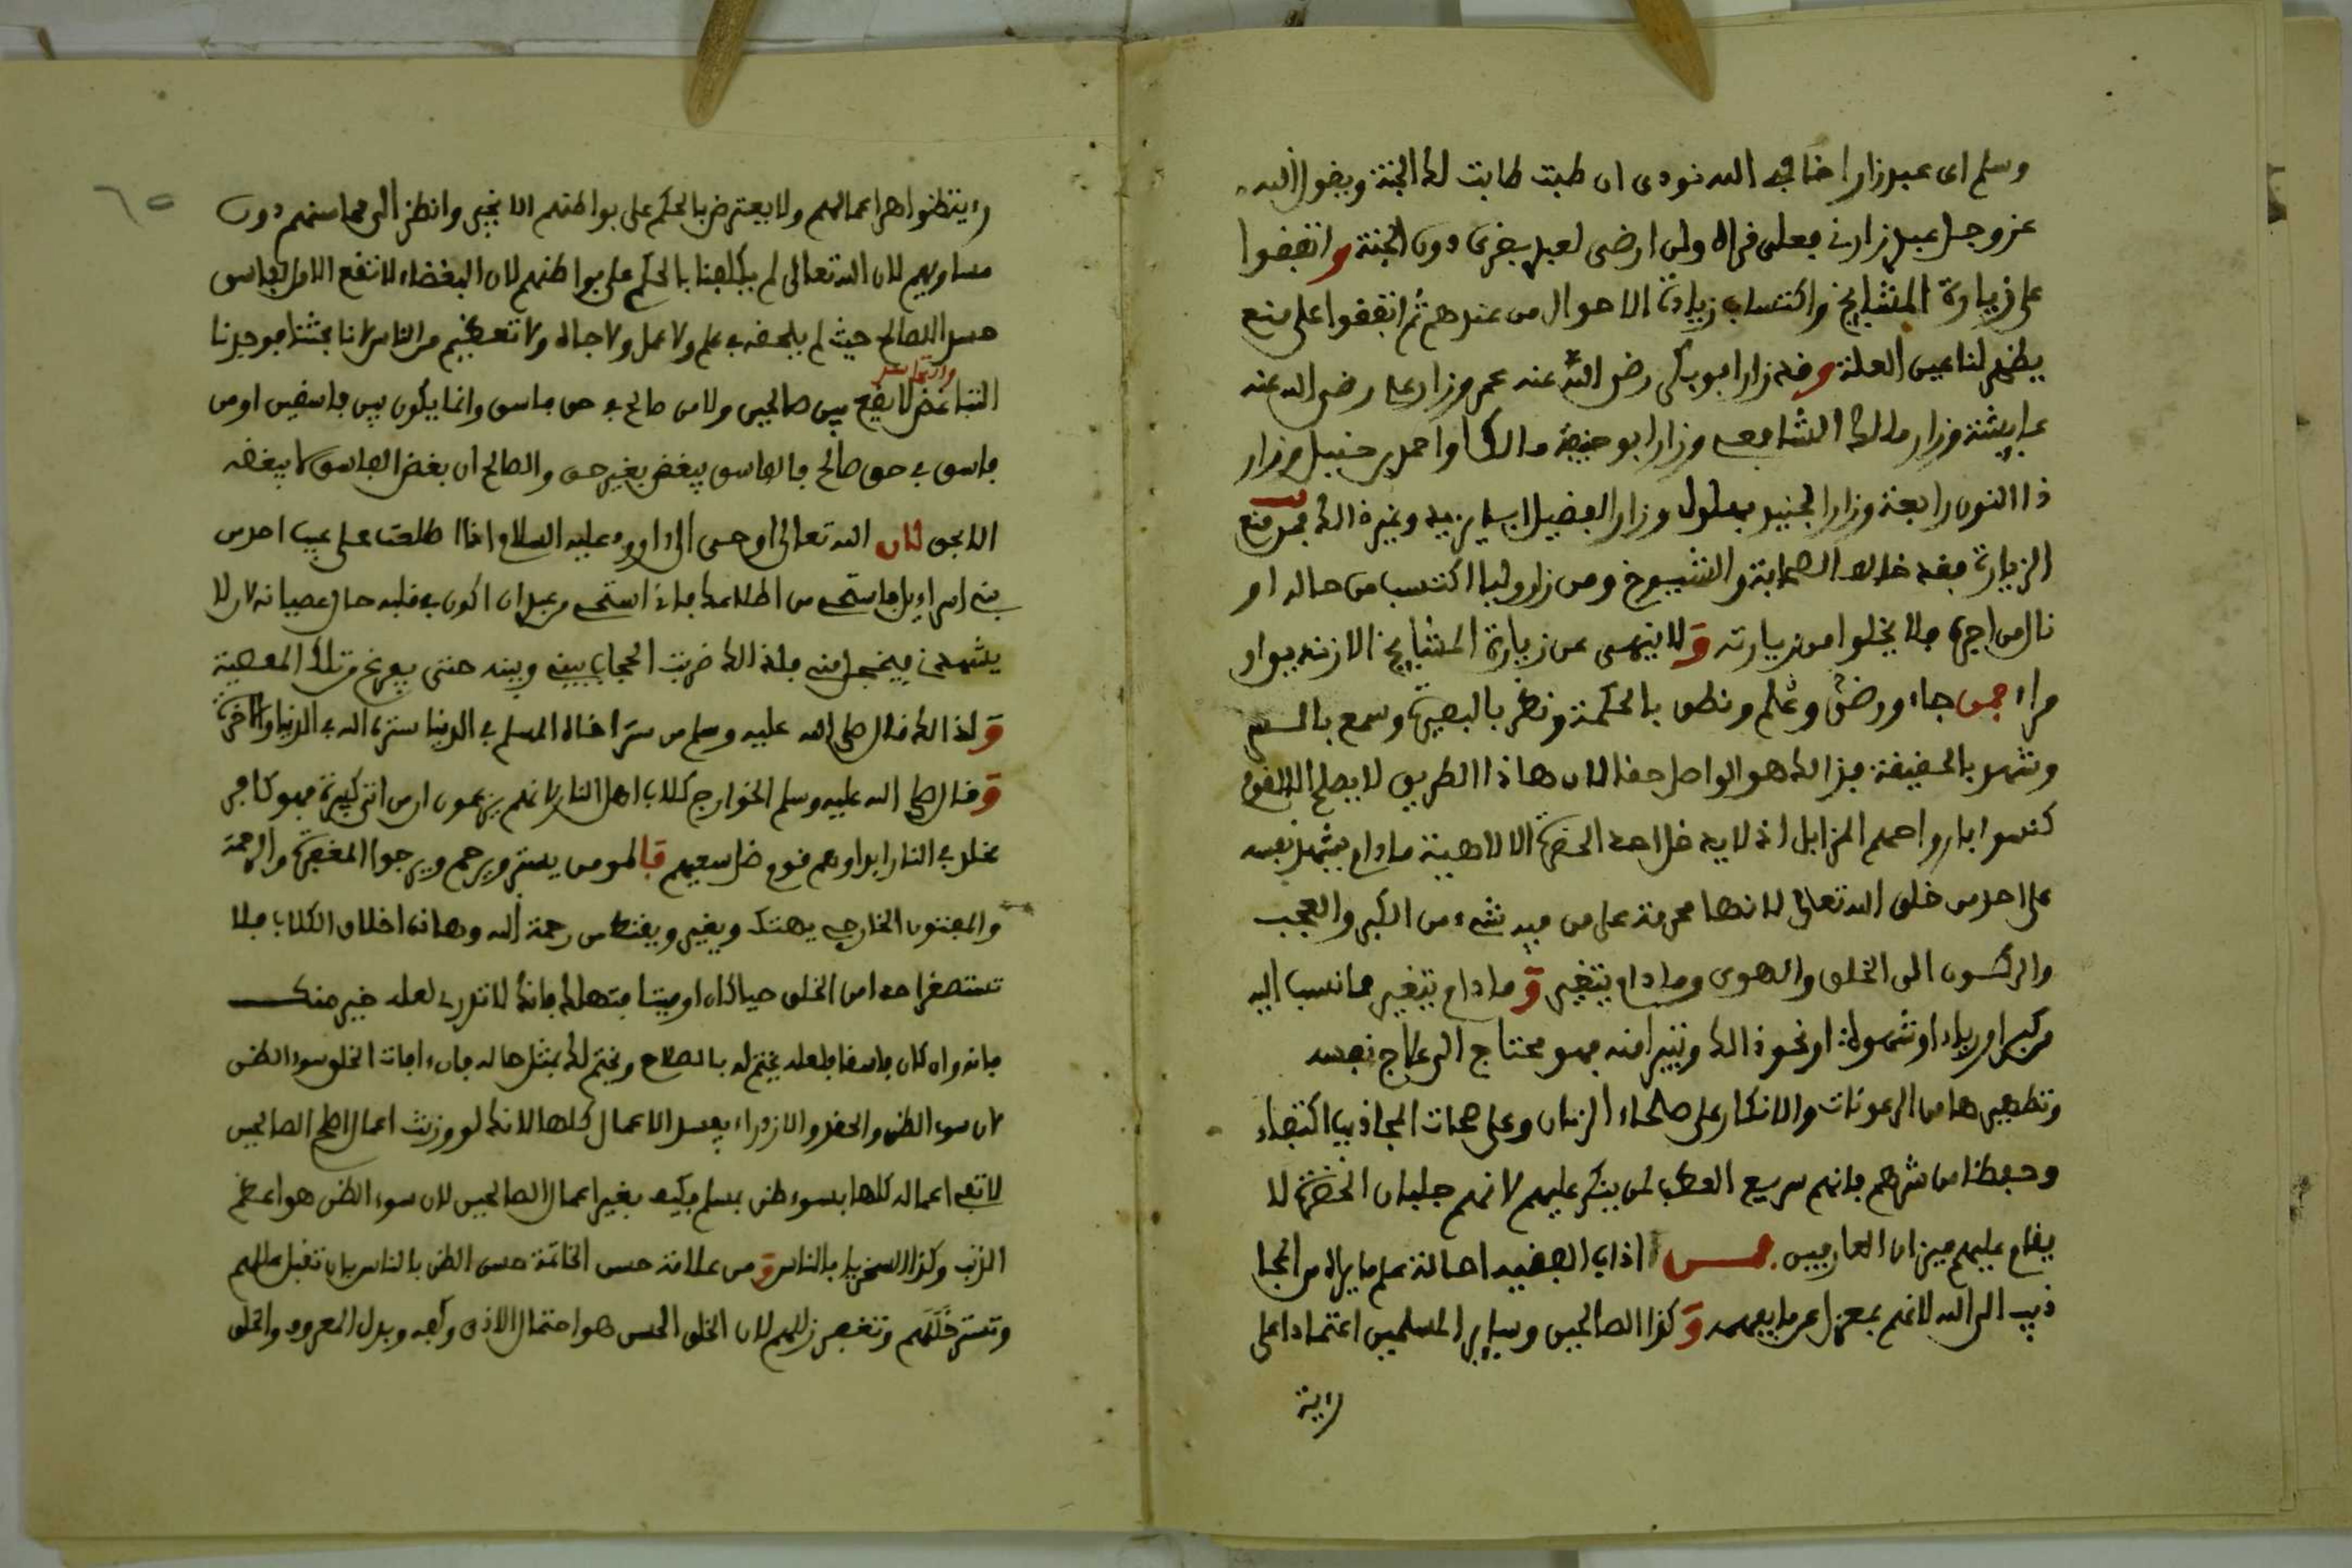 وسلم اى عبد زار اخا فى الله نودى ان طبت طابت لك الجنة ويقول الله
عز وجل عبد زارنى فعلى قراه ولن ارضى لعبد بقرى دون الجنة واتفقوا
على زيارة المشايخ واكتساب زيادة الاحوال من عندهم ثم اتفقوا على منع
يظهر لنا عين العلة وقد زار ابو بكر رضى الله عنه عمر وزار على رضى الله عنه
عايشة وزار مالك الشافعى وزار ابو حنيفة مالكا واحمد بن حنبل وزار
ذا النون رابعة وزار الجنيد بهلول وزار الفضيل ابا يزيد وغير ذالك فمن منع
الزيارة فقد خالف الصحابة والشيوخ ومن زار وليا اكتسب من حاله او
نال من اجره فلا يخلوا من زيارته ولا ينهى عن زيارة المشايخ الا زنديق او
مراء فمن جاء ورضى وعلم ونطق بالحكمة ونظر بالبصيرة وسمع بالسر
وشهد بالحقيقة فذالك هو الواصل حقا لان هاذا الطريق لا يصلح الا لقوم
كنسوا بارواحهم المزابل اذ لا يدخل احد الحضرة الالاهية مادام يشهد نفسه
على احد من خلق الله تعالى لانها محرمة على من فيه شىء من الكبر والعجب
والركون الى الخلق والهوى وما دام يتغير وما دام يتغير مما نسب اليه
من كبر او رياء او شهوة او نحو ذالك ويتبرا منه فهو محتاج الى علاج نفسه
وتطهيرها من الرعونات والانكار على صلحاء الزمان وعلى المجاذيب اكتفاء
وحفظا من شرهم فانهم سريع العطب لمن ينكر عليهم لانهم جلساء الحضرة لا
يقام عليهم ميزان العارفين فمن اداب الفقير احالة علم ما يراه من المجا
ذيب الى الله لانهم بمعزل عن ما يفهمه وكذا الصالحين وساير المسلمين اعتمادا على
رءية
رءية ظواهر اعمالهم ولا يعترض بالحكم على بواطنهم الا بخير وانظر الى محاسنهم دون
مساويهم لان الله تعالى لم يكلفنا بالحكم على بواطنهم لان البغضاء لا تقع الا من فاسق
حسد الصالح حيث لم يلحقه فى علم ولا عمل ولا جاه ولا تعظيم من الناس لانا بحثنا فوجدنا
والتحاسد
التباغض لا يقع بين صالحين ولا من صالح فى حق فاسق وانما يكون بين فاسقين او من
فاسق فى حق صالح فالفاسق يبغض بغير حق والصالح ان بغض الفاسق لا يبغضه
الا بحق لان الله تعالى اوحى الى داوود عليه السلام اذا اطلعت على عيب احد من
بنى اسراءيل فاستحى من اطلاعك فانى استحى من عبد ان اكون فى قلبه حال عصيانه لان لا
يشهدنى فيخجل منى فلذالك ضربت الحجاب بينى وبينه حتى يفرغ من تلك المعصية
ولذالك قال صلى الله عليه وسلم من ستر اخاه المسلم فى الدنيا ستره الله فى الدنيا والاخرة
وقال صلى الله عليه وسلم الخوارج كلاب اهل النار لانهم يزعمون ان من اتى كبيرة فهو كافر
مخلد فى النار ابدا وهم قوم ضل سعيهم فالمومن يستر ويرحم ويرجوا المغفرة والرحمة
والمفتون الخارجى يهتك ويغير ويقنط من رحمة الله وهاذه اخلاق الكلاب فلا
تستصغر احدا من الخلق حيا كان او ميتا فتهلك فانك لا تدرى لعله خير منك
فانه وان كان فاسقا فلعله يختم له بالصلاح ويختم لك بمثل حاله فان ءافات الخلق سوء الظن
لان سوء الظن والحقد والازدراء يفسد الاعمال كلها لانك لو وزنت اعمال اصلح الصالحين
لا تفى اعماله كلها بسوء ظن بمسلم فكيف بغير اعمال الصالحين لان سوء الظن هو اعظم
الذنب وكذا السخريا بالناس ومن علامة حسن الخاتمة حسن الظن بالناس بان تقبل عللهم
وتستر خللهم وتغفر زللهم لان الخلق الحسن هو احتمال الاذى وكفه وبدل المعروف والخلق